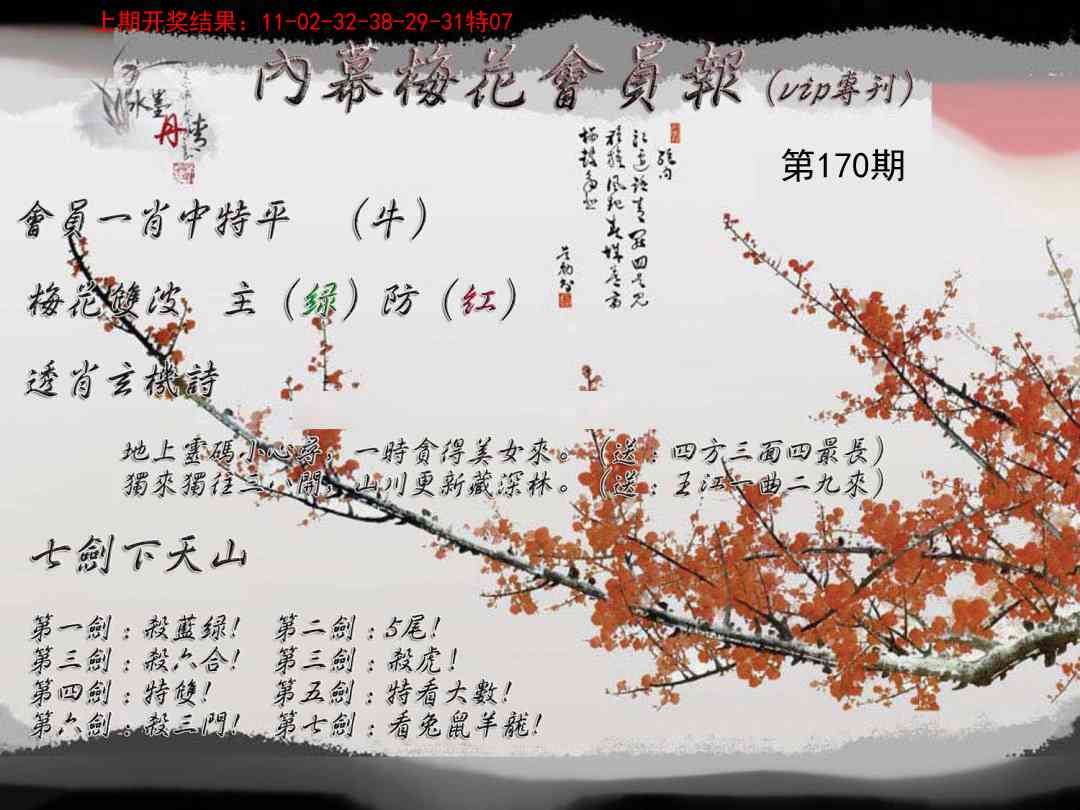 上期开奖结果：11-02-32-38-29-31特07
內幕梅花會員報（vip專刊）
水墨
丹情
第170期
會員一肖中特平　（牛）
梅花雙波　主（绿）防（红）
透肖玄機詩
地上靈碼小心尋，一時貪得美女來。（送：四方三面四最長）
獨來獨往三八開，山川更新藏深林。（送：王江一曲二九來）
七劍下天山
第一劍：殺藍绿！　第二劍：5尾！
第三劍：殺六合！　第三劍：殺虎！
第四劍：特雙！　第五劍：特看大數！
第六劍：殺三門！　第七劍：看兔鼠羊龍！